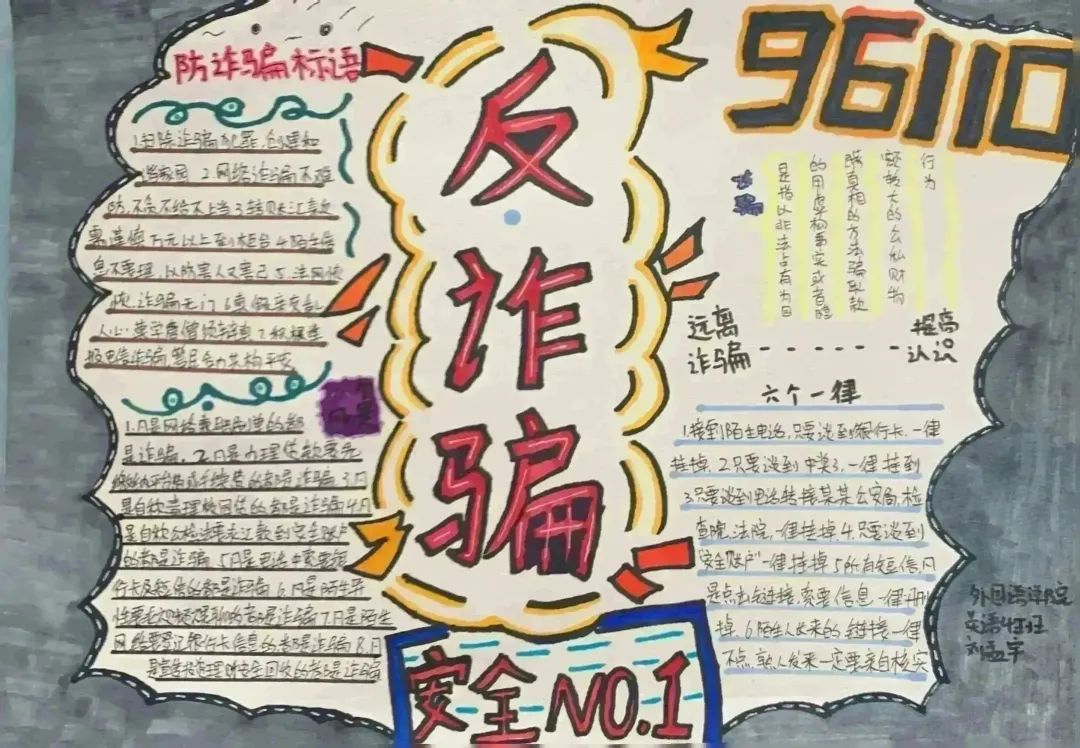 防诈骗标语
1.扫除诈骗犯罪,创建和
谐校园 2.网络诈骗不难
防,不贪不给不上当 3.转账汇款
万元以上到柜台 4.陌生信
息不要理,以防害人又害己 5.法网恢
恢,诈骗无门 6.
人心
报电信诈骗,警民合力共构平安
凡是
1.凡是网络兼职刷单的都
是诈骗. 2.凡是办理贷款要先
的都是诈骗 3.凡
是自称 的都是诈骗 4.凡
是自称公检法要求汇款到安全账户
的都是诈骗 5.凡是电话
行卡及短信的都是诈骗 6.凡是陌生
的都是诈骗 7.凡是陌生
网 登记银行卡信息的都是诈骗 8.凡
是 的都是诈骗
反诈骗
安全NO.1
96110
诈骗
是指以非法占有为目
的用虚构事实或者隐
瞒真相的方法骗取款
额较大的公私财物
行为
远离
诈骗
提高
认识
六个一律
1.接到陌生电话,只要谈到银行卡,一律
挂掉. 2.只要谈到中奖了,一律挂到
3.只要谈到电话转接某某公安局,检
查院,法院,一律挂掉 4.只要谈到
"安全账户"一律挂掉 5.所有短信,凡
是点击链接,索要信息,一律删
掉. 6.陌生人发来的链接一律
不点,熟人发来一定要亲自核实
外国语学院
英语
刘孟宇